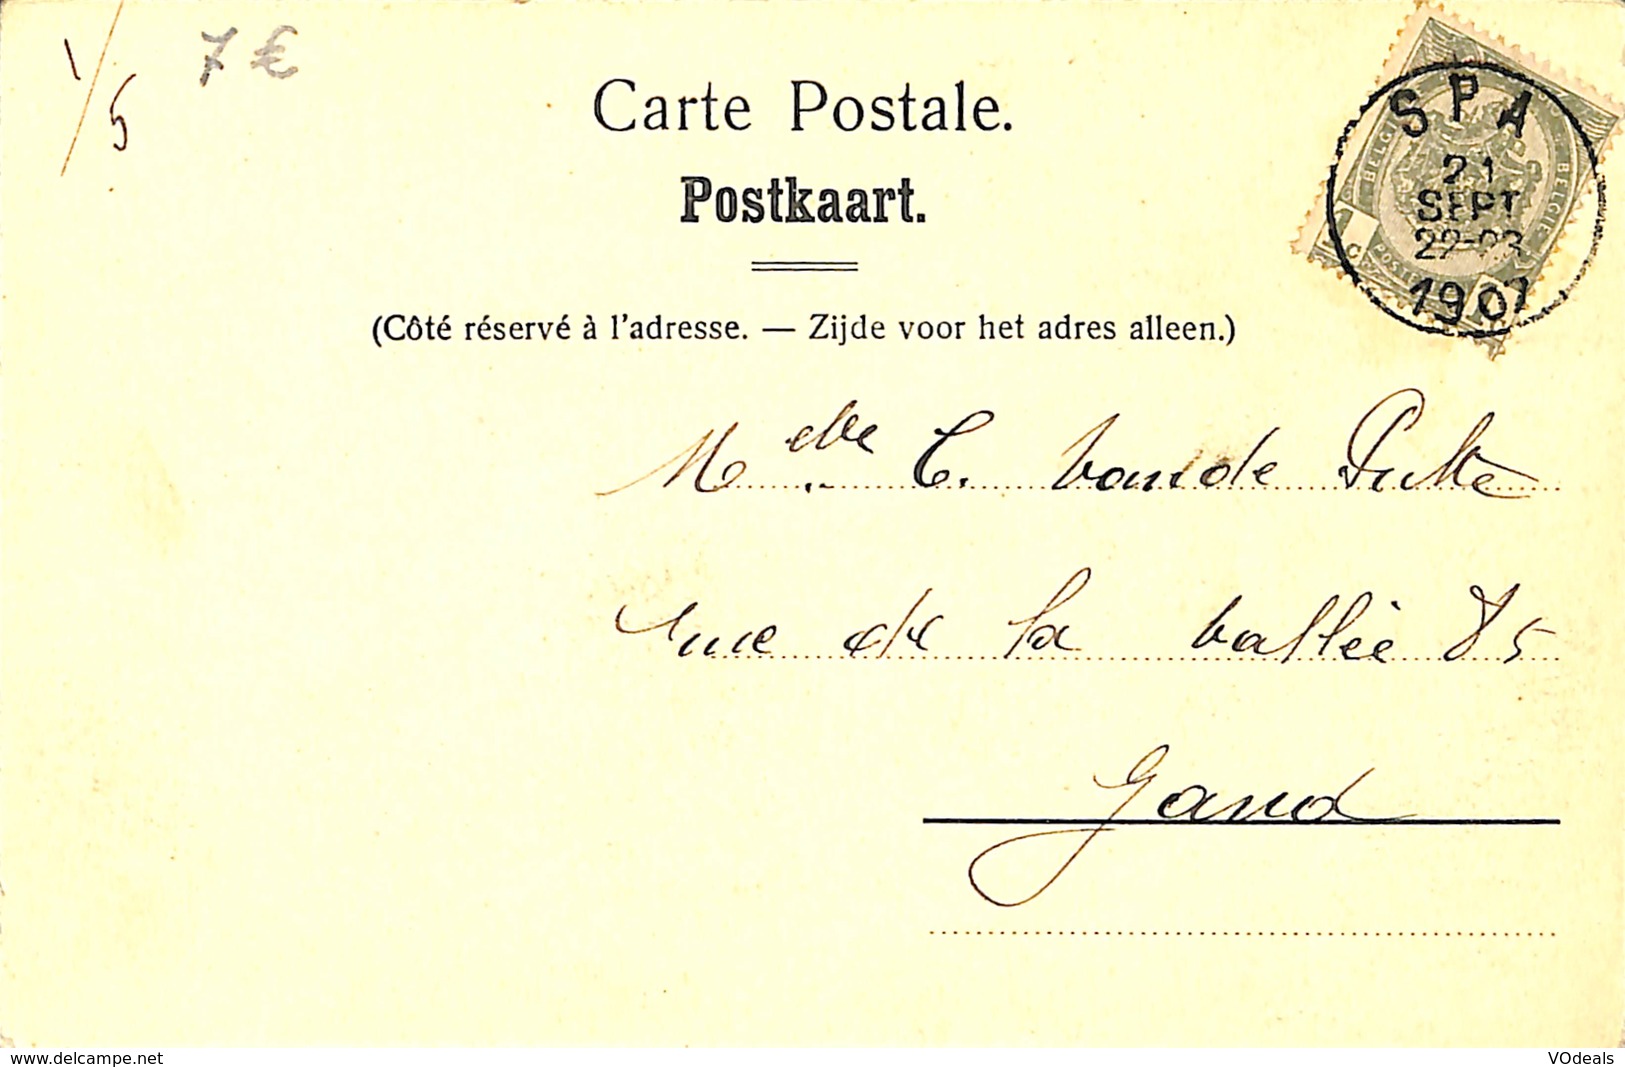 1/5
7 €
Carte Postale.
Postkaart.
(Côté réservé à l'adresse. — Zijde voor het adres alleen.)
SPA
21
SEPT
22-23
1907
BELGIQUE
BELGIE
1 c
POSTE
M.elle C. Van de Putte
rue de la Vallée 85
Gand
www.delcampe.net
VOdeals